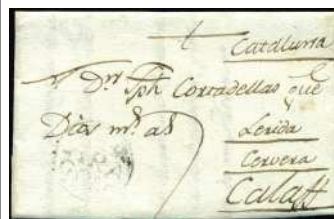 Cataluña
Dn Jph Cortadellas que
Dios ms as
Lerida
Cervera
Calaff